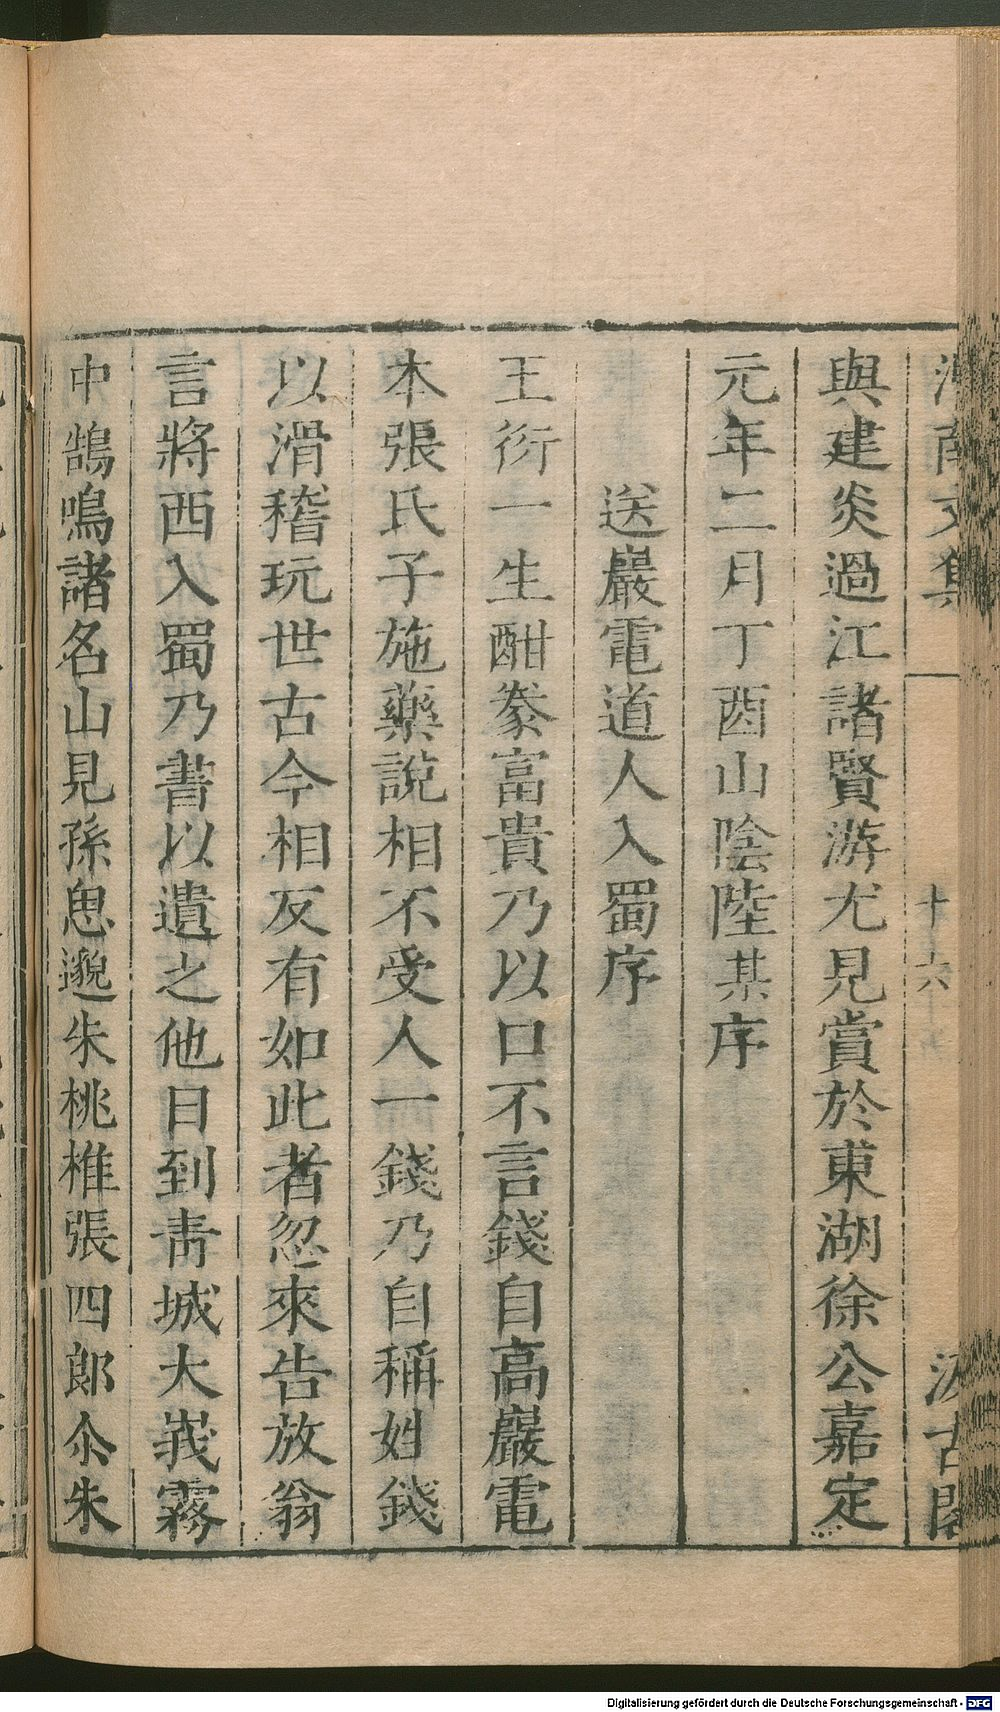 文集
十六
汲古閣
與建炎過江諸賢游尤見賞於東湖徐公嘉定
元年二月丁酉山陰陸某序
送巖電道人入蜀序
王衍一生酣豢富貴乃以口不言錢自高巖電
本張氏子施藥說相不受人一錢乃自稱姓錢
以滑稽玩世古今相反有如此者忽來告放翁
言將西入蜀乃書以遺之他日到青城大峩霧
中鵠鳴諸名山見孫思邈朱桃椎張四郎尒朱
Digitalisierung gefördert durch die Deutsche Forschungsgemeinschaft - DFG